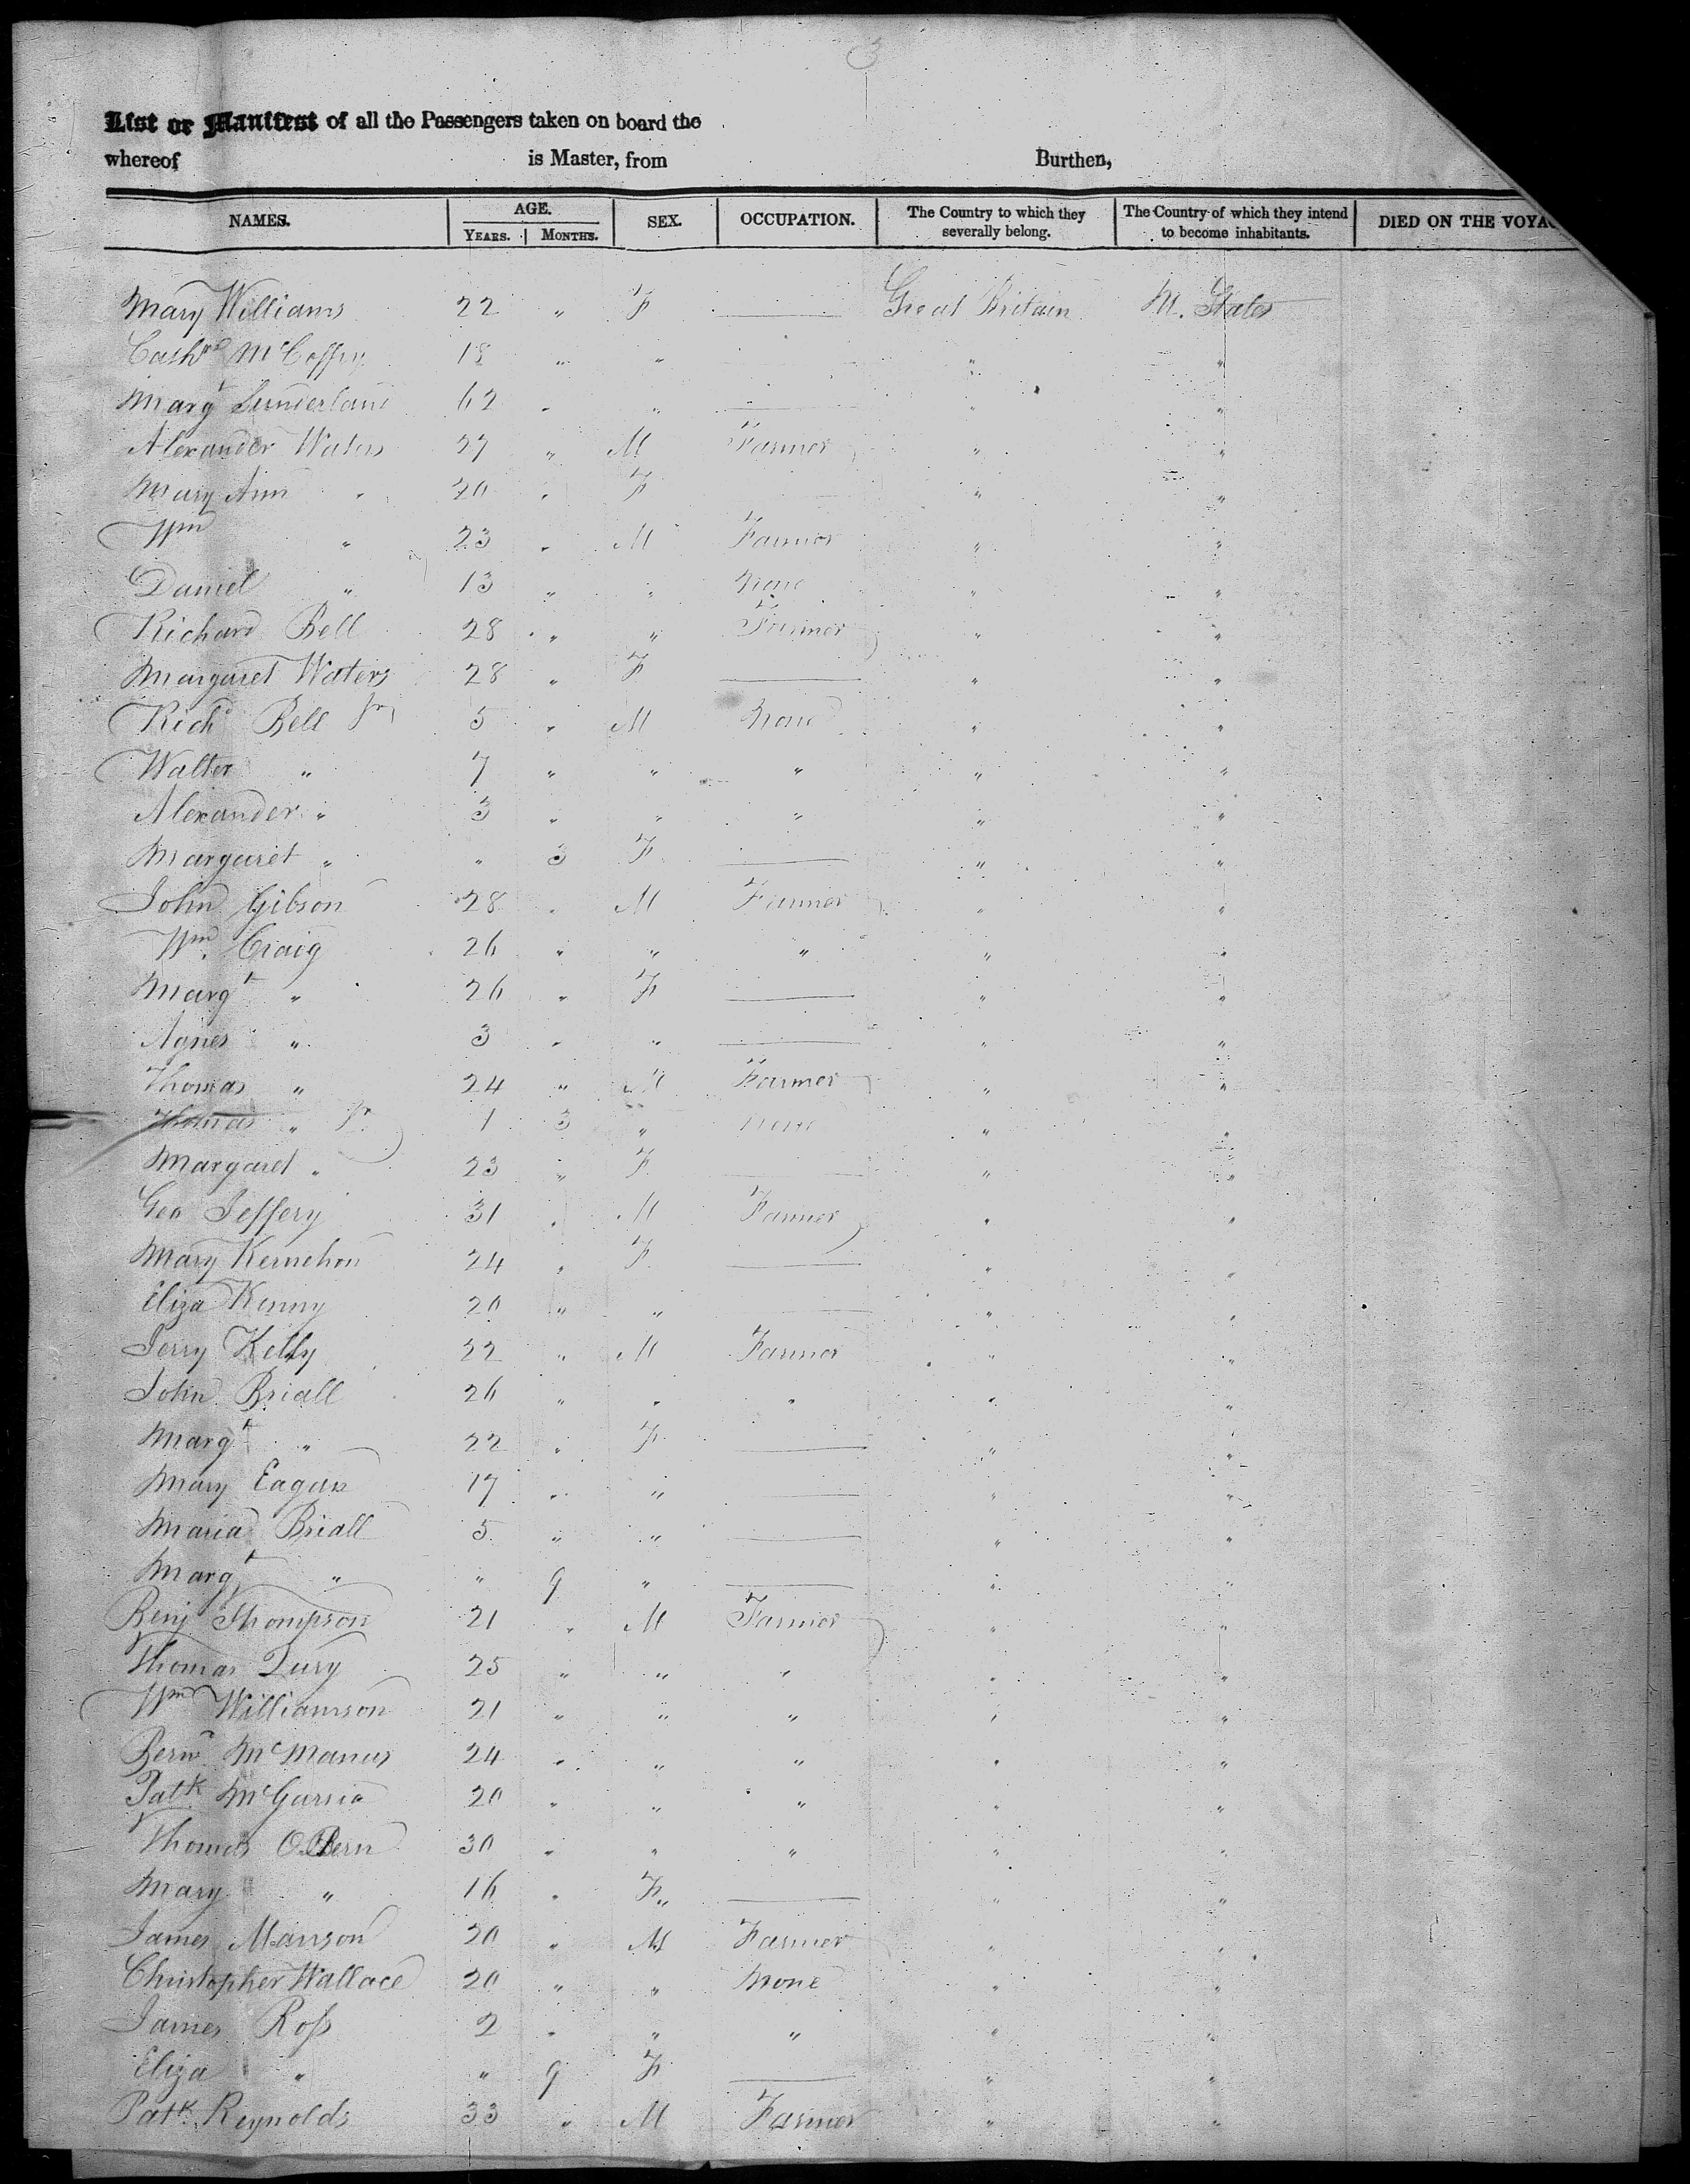 3
List or Manifest of all the Passengers taken on board the
whereof is Master, from Burthen,
NAMES. AGE. YEARS. MONTHS. SEX. OCCUPATION. The Country to which they severally belong. The Country of which they intend to become inhabitants. DIED ON THE VOYA
Mary Williams 22 " F — Great Britain U. States
Cathne McCaffry 18 " " " "
Margt Sunderland 62 " " — " "
Alexander Waters 27 " M Farmer " "
Mary Ann " 20 " F — " "
Wm " 23 " M Farmer " "
Daniel " 13 " " None " "
Richard Bell 28 " " Farmer " "
Margaret Waters 28 " F — " "
Richd Bell Jr 5 " M None " "
Walter " 7 " " " " "
Alexander " 3 " " " " "
Margaret " " 3 F — " "
John Gibson 28 " M Farmer " "
Wm. Craig 26 " " " " "
Margt " 26 " F — " "
Agnes " 3 " " — " "
Thomas " 24 " M Farmer " "
Thomas " Jr. 1 3 " None " "
Margaret " 23 " F — " "
Geo Jeffery 31 " M Farmer " "
Mary Kernehon 24 " F — " "
Eliza Kenny 20 " " — " "
Jerry Kelly 22 " M Farmer " "
John Briall 26 " " " " "
Margt " 22 " F — " "
Mary Eagan 17 " " — " "
Maria Briall 5 " " — " "
Margt " " 9 " — " "
Benj Thompson 21 " M Farmer " "
Thomas 25 " " " " "
Wm Williamson 21 " " " " "
Bernd McManus 24 " " " " "
Patk 20 " " " " "
Thomas O.Bern 30 " " " " "
Mary " 16 " F — " "
James Manson 20 " M Farmer " "
Christopher Wallace 20 " " None " "
James Ross 2 " " " " "
Eliza " " 9 F — " "
Patk. Reynolds 33 " M Farmer " "